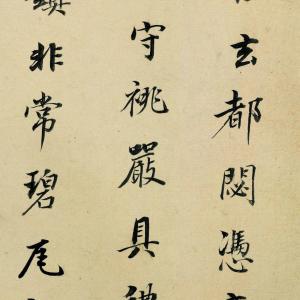 玄都閟憑
守祧嚴具禮
鎮非常碧尾